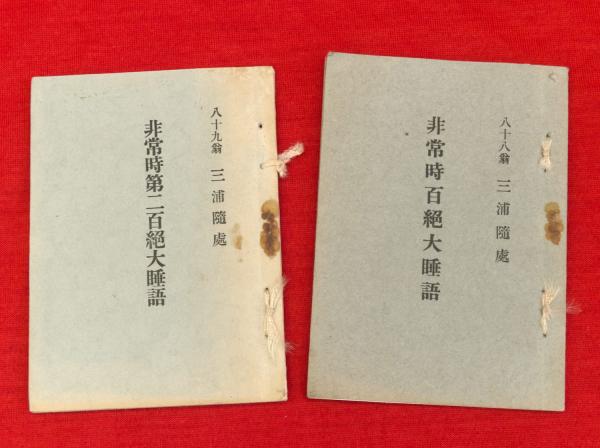 八十八翁 三浦隨處
非常時百絕大睡語
八十九翁 三浦隨處
非常時第二百絕大睡語